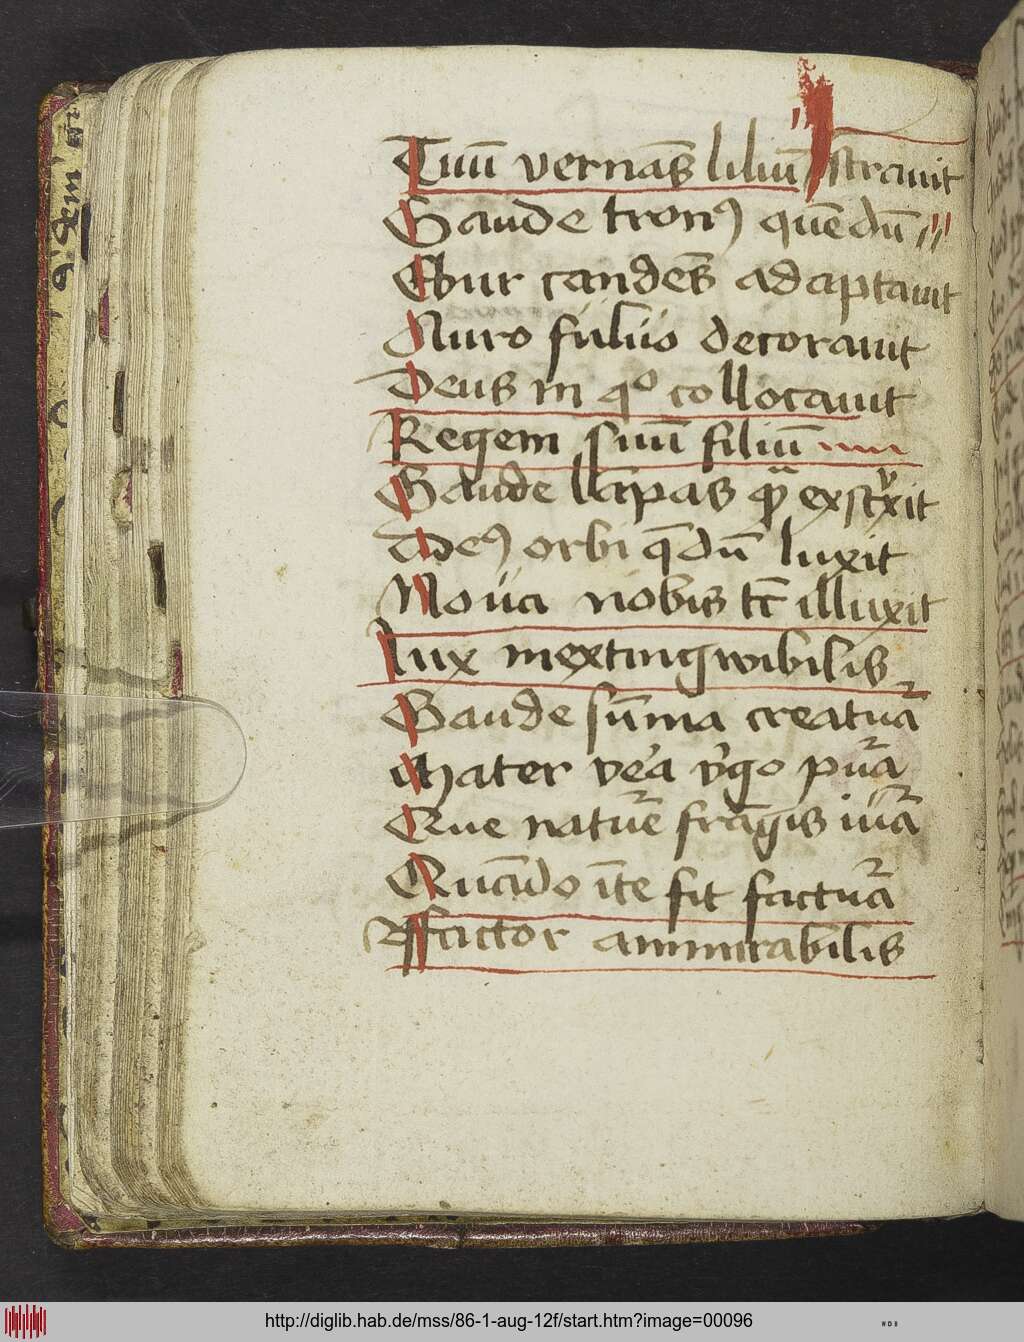 Tuū vernās liliū strauit
Gaude tronꝰ quē dū
Ebur candēs adaptauit
Auro fuluo decorauit
Deus in qͦ collocauit
Regem suū filiū
Gaude lāpas
Deꝰ orbi q̄dū luxit
Noua nobis illuxit
Lux inextingwibilis
Gaude sūma creatura
Mater vera v̓go pura
Que nature frāgis iura
Quādo in te fit factura
Factor ammirabilis
http://diglib.hab.de/mss/86-1-aug-12f/start.htm?image=00096